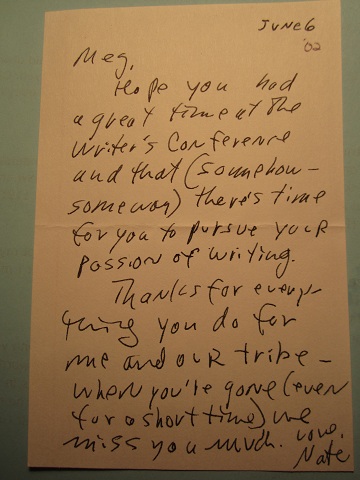 JUNE 6
'02
Meg,
Hope you had
a great time at the
Writer's Conference
and that (somehow -
someway) there's time
for you to pursue your
passion of writing.
Thanks for every-
thing you do for
me and our tribe -
when you're gone (even
for a short time) we
miss you much. Love,
Nate